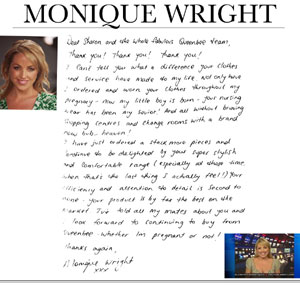 MONIQUE WRIGHT
Dear Sharon and the whole fabulous Queenbee team,
Thank you! Thank you! Thank you!
I can't tell you what a difference your clothes
and service have made to my life. Not only have
I ordered and worn your clothes throughout my
pregnancy - now my little boy is born - your nursing
wear has been my savior! And all without braving
shopping centres and change rooms with a brand
new bub. Heaven!
I have just ordered a stack more pieces and
continue to be delighted by your super stylish
and comfortable range (especially at those times
when that's the last thing I actually feel!) Your
efficiency and attention to detail is second to
none - your product is by far the best on the
market. I've told all my mates about you and
look forward to continuing to buy from
Queenbee - whether I'm pregnant or not!
Thanks again,
Monique Wright
xxx